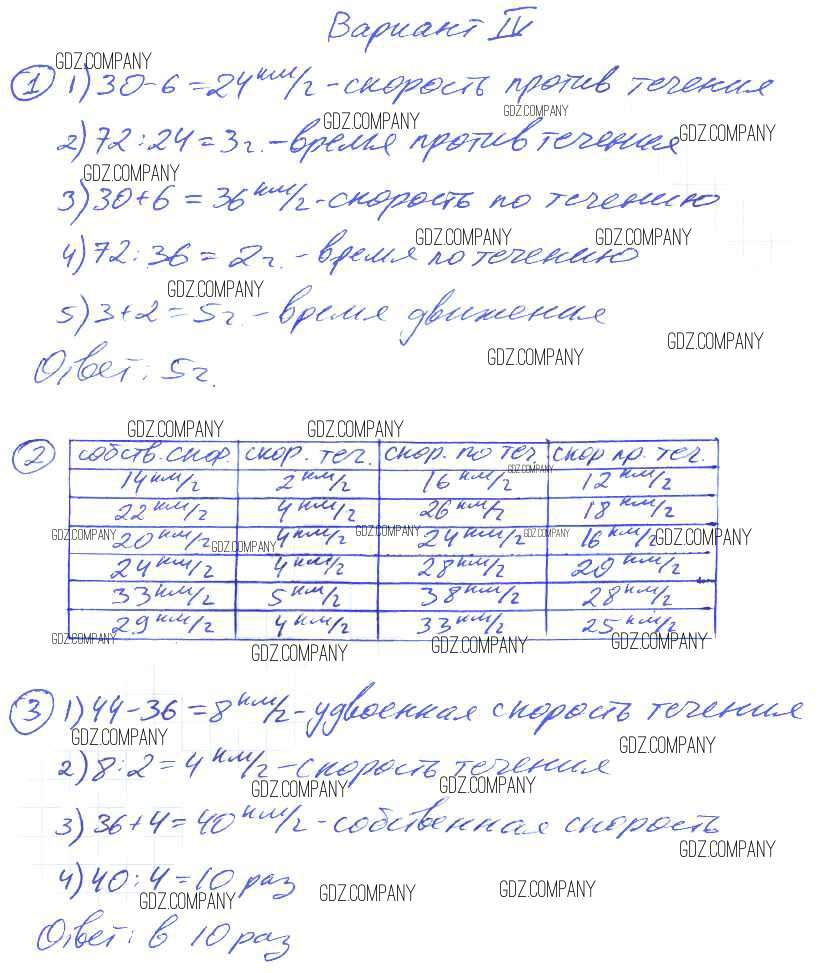 Вариант IV
GDZ.COMPANY
① 1) 30-6=24 км/г - скорость против течения
GDZ.COMPANY GDZ.COMPANY GDZ.COMPANY
2) 72:24=3г. - время против течения
GDZ.COMPANY
3) 30+6=36 км/г - скорость по течению
GDZ.COMPANY GDZ.COMPANY
4) 72:36=2г. - время по течению
GDZ.COMPANY
5) 3+2=5г. - время движения
GDZ.COMPANY GDZ.COMPANY
Ответ: 5г.
GDZ.COMPANY GDZ.COMPANY
② собств. скор. скор. теч. скор. по теч. скор пр. теч.
GDZ.COMPANY
14 км/г 2 км/г 16 км/г 12 км/г
22 км/г 4 км/г 26 км/г 18 км/г
GDZ.COMPANY GDZ.COMPANY GDZ.COMPANY GDZ.COMPANY GDZ.COMPANY
20 км/г 4 км/г 24 км/г 16 км/г
24 км/г 4 км/г 28 км/г 20 км/г
33 км/г 5 км/г 38 км/г 28 км/г
29 км/г 4 км/г 33 км/г 25 км/г
GDZ.COMPANY GDZ.COMPANY GDZ.COMPANY GDZ.COMPANY
③ 1) 44-36=8 км/г - удвоенная скорость течения
GDZ.COMPANY GDZ.COMPANY
2) 8:2=4 км/г - скорость течения
GDZ.COMPANY GDZ.COMPANY
3) 36+4=40 км/г - собственная скорость
GDZ.COMPANY
4) 40:4=10 раз
GDZ.COMPANY GDZ.COMPANY GDZ.COMPANY
Ответ: в 10 раз